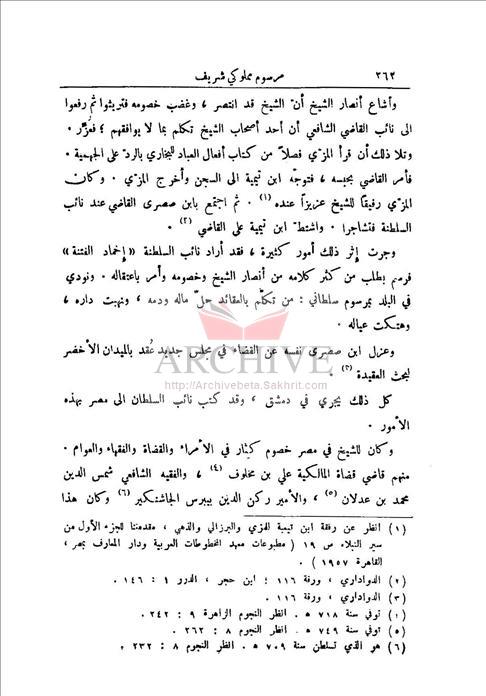 ٣٦٢ مرسوم مملوكي شريف
وأشاع أنصار الشيخ أن الشيخ قد انتصر ، وغضب خصومه فتريثوا ثم رفعوا
الى نائب القاضي الشافعي أن أحد أصحاب الشيخ تكلم بما لا يوافقهم ؛ فعُزّر .
وتلا ذلك أن قرأ المزّي فصلاً من كتاب أفعال العباد للبخاري بالردّ على الجهمية .
فأمر القاضي بحبسه ، فتوجّه ابن تيمية الى السجن وأخرج المزّي . وكان
المزّي رفيقًا للشيخ عزيزاً عنده (١) . ثم اجتمع بابن صصرى القاضي عند نائب
السلطنة فتشاجرا . واشتطّ ابن تيمية على القاضي (٢) .
وجرت إثر ذلك أمور كثيرة ، فقد أراد نائب السلطنة « إخماد الفتنة »
فرسم بطلب من كثر كلامه من أنصار الشيخ وخصومه وأمر باعتقاله . ونودي
في البلد بمرسوم سلطاني : من تكلّم بالعقائد حلّ ماله ودمه ، ونهبت داره ،
وهتكت عياله .
وعزل ابن صصرى نفسه عن القضاء في مجلس جديد عُقد بالميدان الأخضر
لبحث العقيدة (٣) .
ARCHIVE
http://Archivebeta.Sakhrit.com
كل ذلك يجري في دمشق ، وقد كتب نائب السلطان الى مصر بهذه
الأمور .
وكان للشيخ في مصر خصوم كبار في الأمراء والقضاة والفقهاء والعوام .
منهم قاضي قضاة المالكية علي بن مخلوف (٤) ، والفقيه الشافعي شمس الدين
محمد بن عدلان (٥) ، والأمير ركن الدين بيبرس الجاشنكير (٦) وكان هذا
(١) انظر عن رفقة ابن تيمية للمزي والبرزالي والذهبي ، مقدمتنا للجزء الأول من
سير النبلاء ص ١٩ ( مطبوعات معهد المخطوطات العربية ودار المعارف بمصر ،
القاهرة ١٩٥٧ ) .
(٢) الدواداري ، ورقة ١١٦ ؛ ابن حجر ، الدرر ١ : ١٤٦ .
(٣) الدواداري ، ورقة ١١٦ .
(٤) توفي سنة ٧١٨ ه . انظر النجوم الزاهرة ٩ : ٢٤٢ .
(٥) توفي سنة ٧٤٩ ه . انظر النجوم ٨ : ٢٦٢ .
(٦) هو الذي تسلطن سنة ٧٠٩ ه . انظر النجوم ٨ : ٢٣٢ .